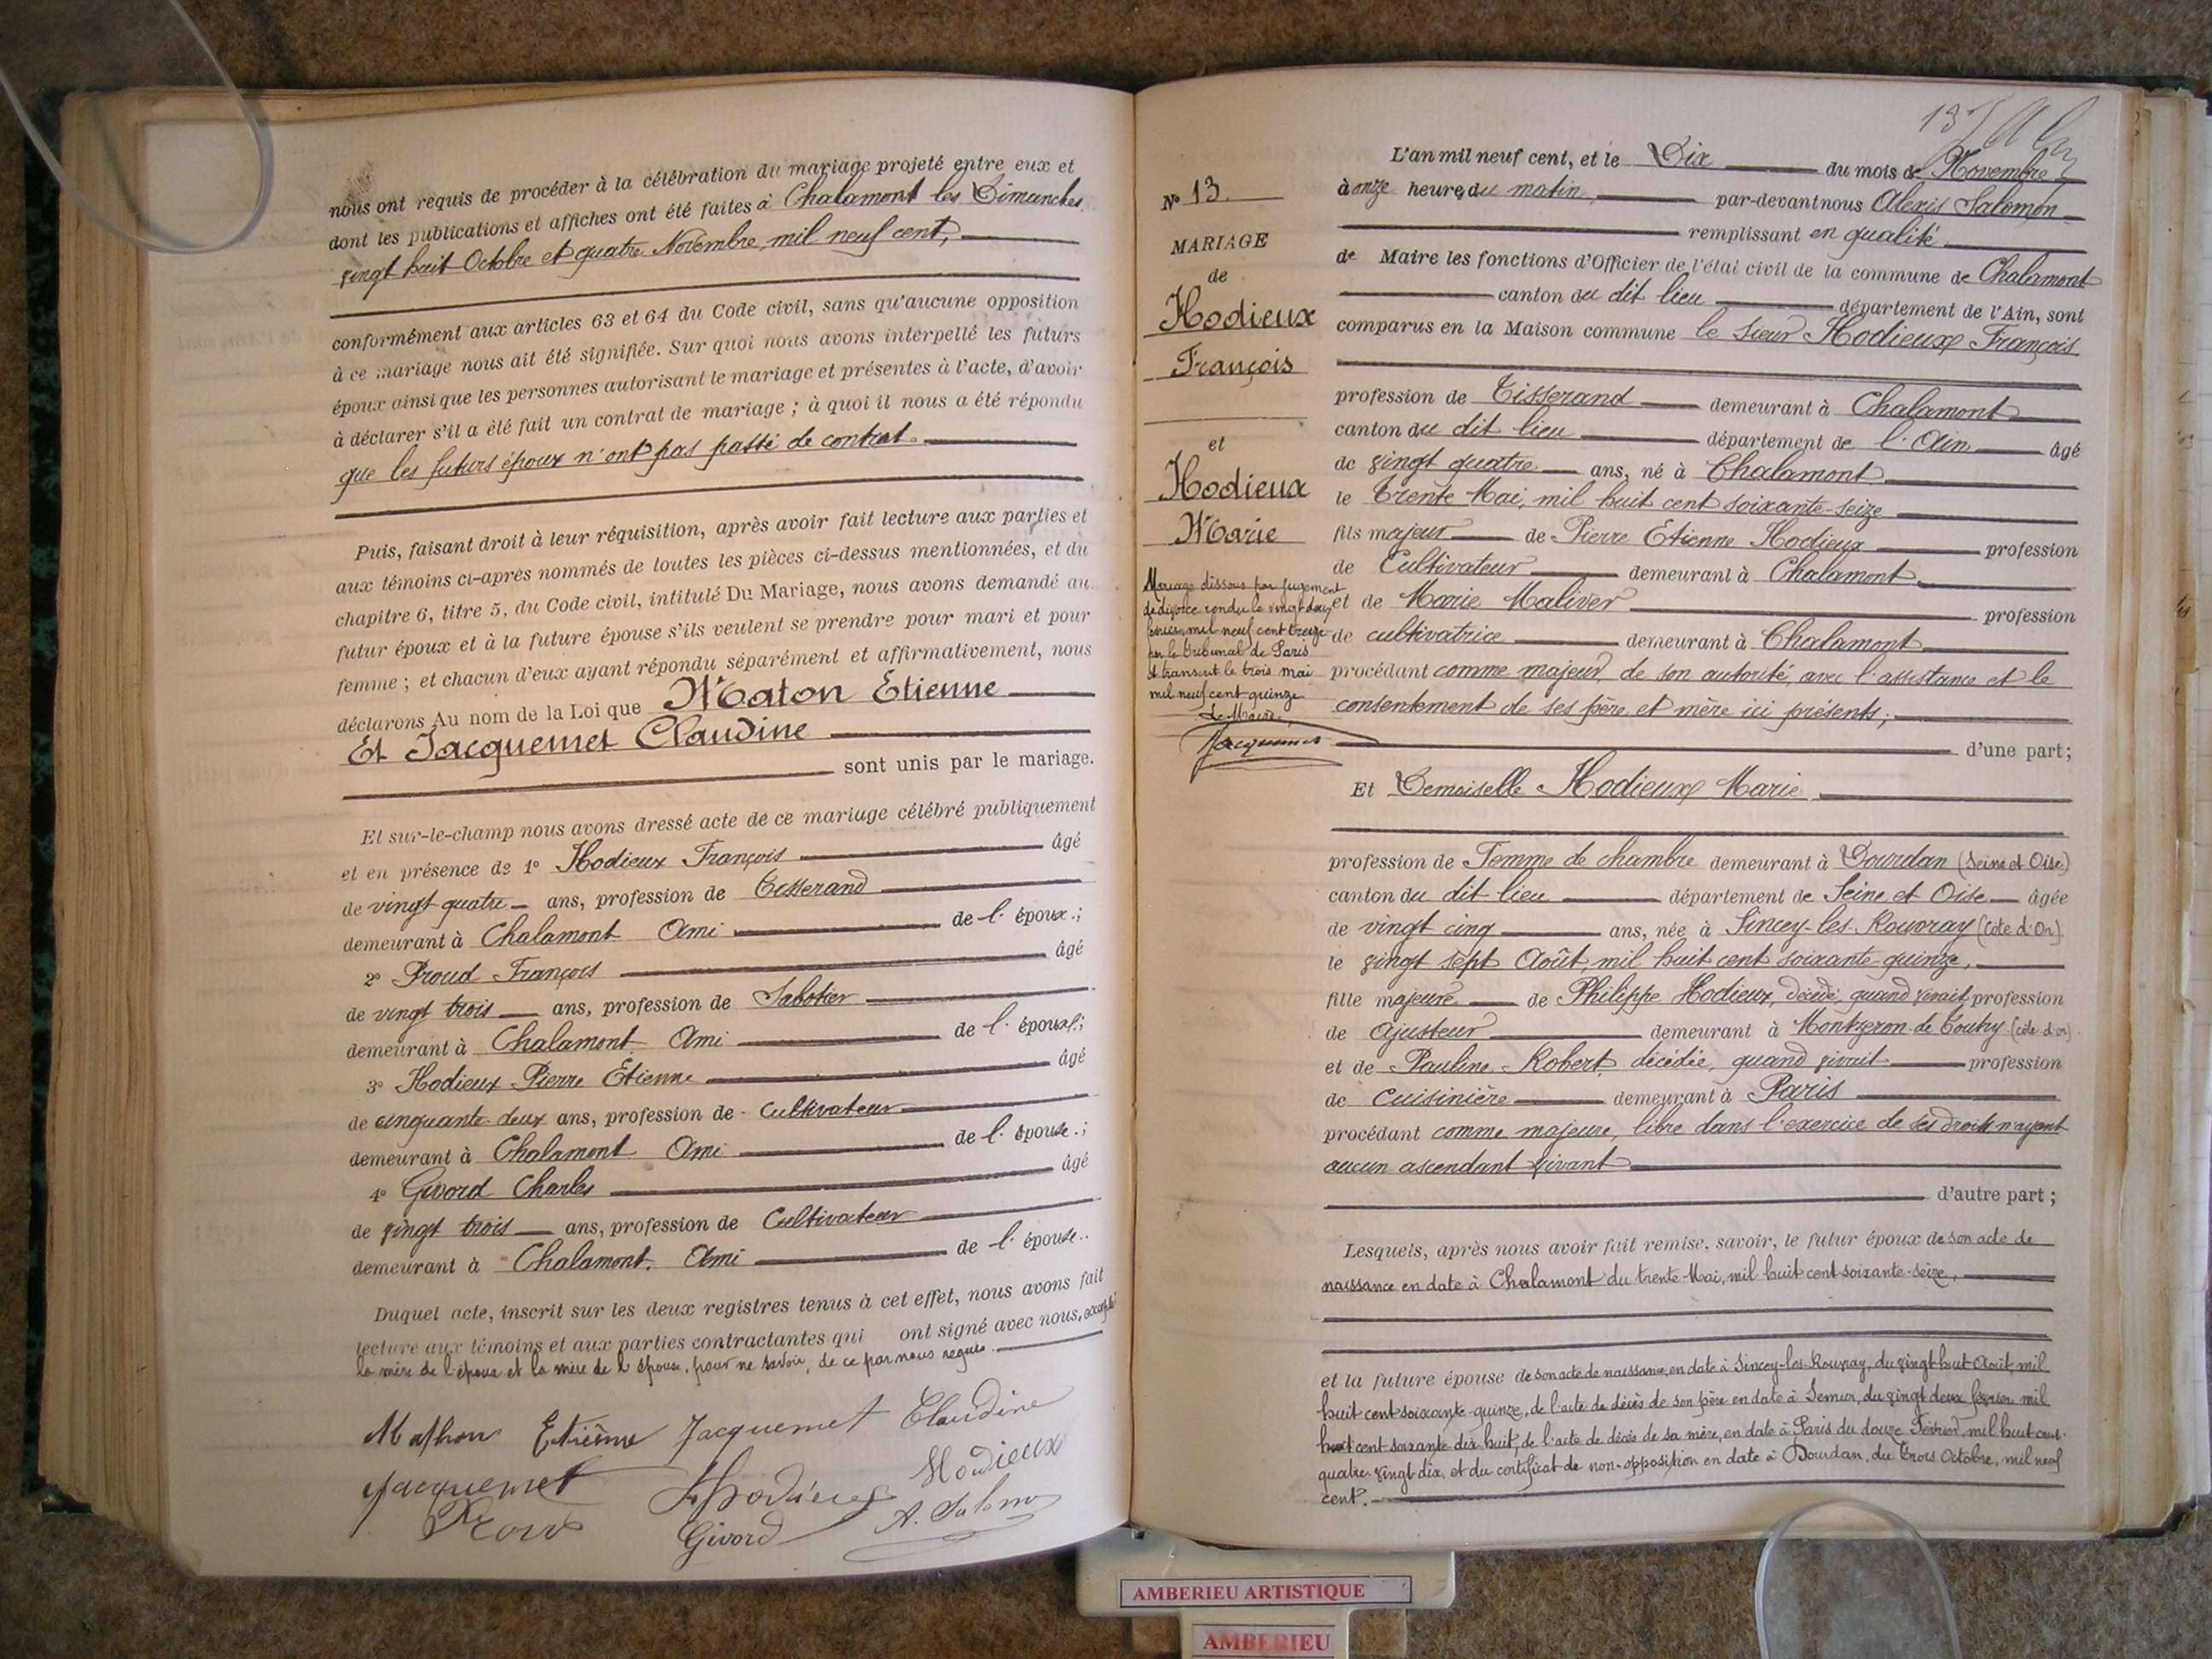 nous ont requis de procéder à la célébration du mariage projeté entre eux et
dont les publications et affiches ont été faites à Chalamont les Dimanches
vingt huit Octobre et quatre Novembre, mil neuf cent,
conformément aux articles 63 et 64 du Code civil, sans qu'aucune opposition
à ce mariage nous ait été signifiée. Sur quoi nous avons interpellé les futurs
époux ainsi que les personnes autorisant le mariage et présentes à l'acte, d'avoir
à déclarer s'il a été fait un contrat de mariage ; à quoi il nous a été répondu
que les futurs époux n'ont pas passé de contrat.
Puis, faisant droit à leur réquisition, après avoir fait lecture aux parties et
aux témoins ci-après nommés de toutes les pièces ci-dessus mentionnées, et du
chapitre 6, titre 5, du Code civil, intitulé Du Mariage, nous avons demandé au
futur époux et à la future épouse s'ils veulent se prendre pour mari et pour
femme ; et chacun d'eux ayant répondu séparément et affirmativement, nous
déclarons Au nom de la Loi que Maton Etienne
Et Jacquemet Claudine
sont unis par le mariage.
Et sur-le-champ nous avons dressé acte de ce mariage célébré publiquement
et en présence de 1° Hodieux François âgé
de vingt quatre ans, profession de Tisserand
demeurant à Chalamont Ami de l'époux ;
2° Proud François âgé
de vingt trois ans, profession de Sabotier
demeurant à Chalamont Ami de l'époux ;
3° Hodieux Pierre Etienne âgé
de cinquante deux ans, profession de Cultivateur
demeurant à Chalamont Ami de l'épouse ;
4° Givord Charles âgé
de vingt trois ans, profession de Cultivateur
demeurant à Chalamont. Ami de l'épouse.
Duquel acte, inscrit sur les deux registres tenus à cet effet, nous avons fait
lecture aux témoins et aux parties contractantes qui ont signé avec nous, excepté
la mère de l'époux et la mère de l'épouse, pour ne savoir, de ce par nous requis.
Mathon Etienne Jacquemet Claudine
Jacquemet Hodieux Hodieux
Proud Givord A. Salomon
137
N° 13.
MARIAGE
de
Hodieux
François
et
Hodieux
Marie
Mariage dissous par jugement
de divorce rendu le vingt deux
février mil neuf cent treize
par le tribunal de Paris
et transcrit le trois mai
mil neuf cent quinze
Le Maire,
Jacquemet
L'an mil neuf cent, et le Dix du mois de Novembre
à onze heures du matin, par-devant nous Alexis Salomon
remplissant en qualité
de Maire les fonctions d'Officier de l'état civil de la commune de Chalamont
canton du dit lieu département de l'Ain, sont
comparus en la Maison commune le sieur Hodieux François
profession de Tisserand demeurant à Chalamont
canton du dit lieu département de l'Ain âgé
de vingt quatre ans, né à Chalamont
le trente Mai, mil huit cent soixante-seize
fils majeur de Pierre Etienne Hodieux profession
de Cultivateur demeurant à Chalamont
et de Marie Maliver profession
de cultivatrice demeurant à Chalamont
procédant comme majeur, de son autorité, avec l'assistance et le
consentement de ses père et mère ici présents ;
d'une part ;
Et Demoiselle Hodieux Marie
profession de Femme de chambre demeurant à Dourdan (Seine et Oise)
canton du dit lieu département de Seine et Oise âgée
de vingt cinq ans, née à Sincey-les-Rouvray (Côte d'Or)
le vingt sept Août, mil huit cent soixante-quinze,
fille majeure de Philippe Hodieux, décédé, quand vivait profession
de Ajusteur demeurant à (côte d'or)
et de Pauline Robert, décédée, quand vivait profession
de Cuisinière demeurant à Paris
procédant comme majeure, libre dans l'exercice de ses droits n'ayant
aucun ascendant vivant
d'autre part ;
Lesquels, après nous avoir fait remise, savoir, le futur époux de son acte de
naissance en date à Chalamont du trente Mai, mil huit cent soixante-seize,
et la future épouse de son acte de naissance, en date à Sincey-les-Rouvray, du vingt huit Août, mil
huit cent soixante-quinze, de l'acte de décès de son père en date à Semur, du vingt deux février mil
huit cent soixante dix huit, de l'acte de décès de sa mère, en date à Paris du douze Février, mil huit cent
quatre-vingt-dix, et du certificat de non-opposition en date à Dourdan, du trois Octobre, mil neuf
cent.
AMBERIEU ARTISTIQUE
AMBERIEU